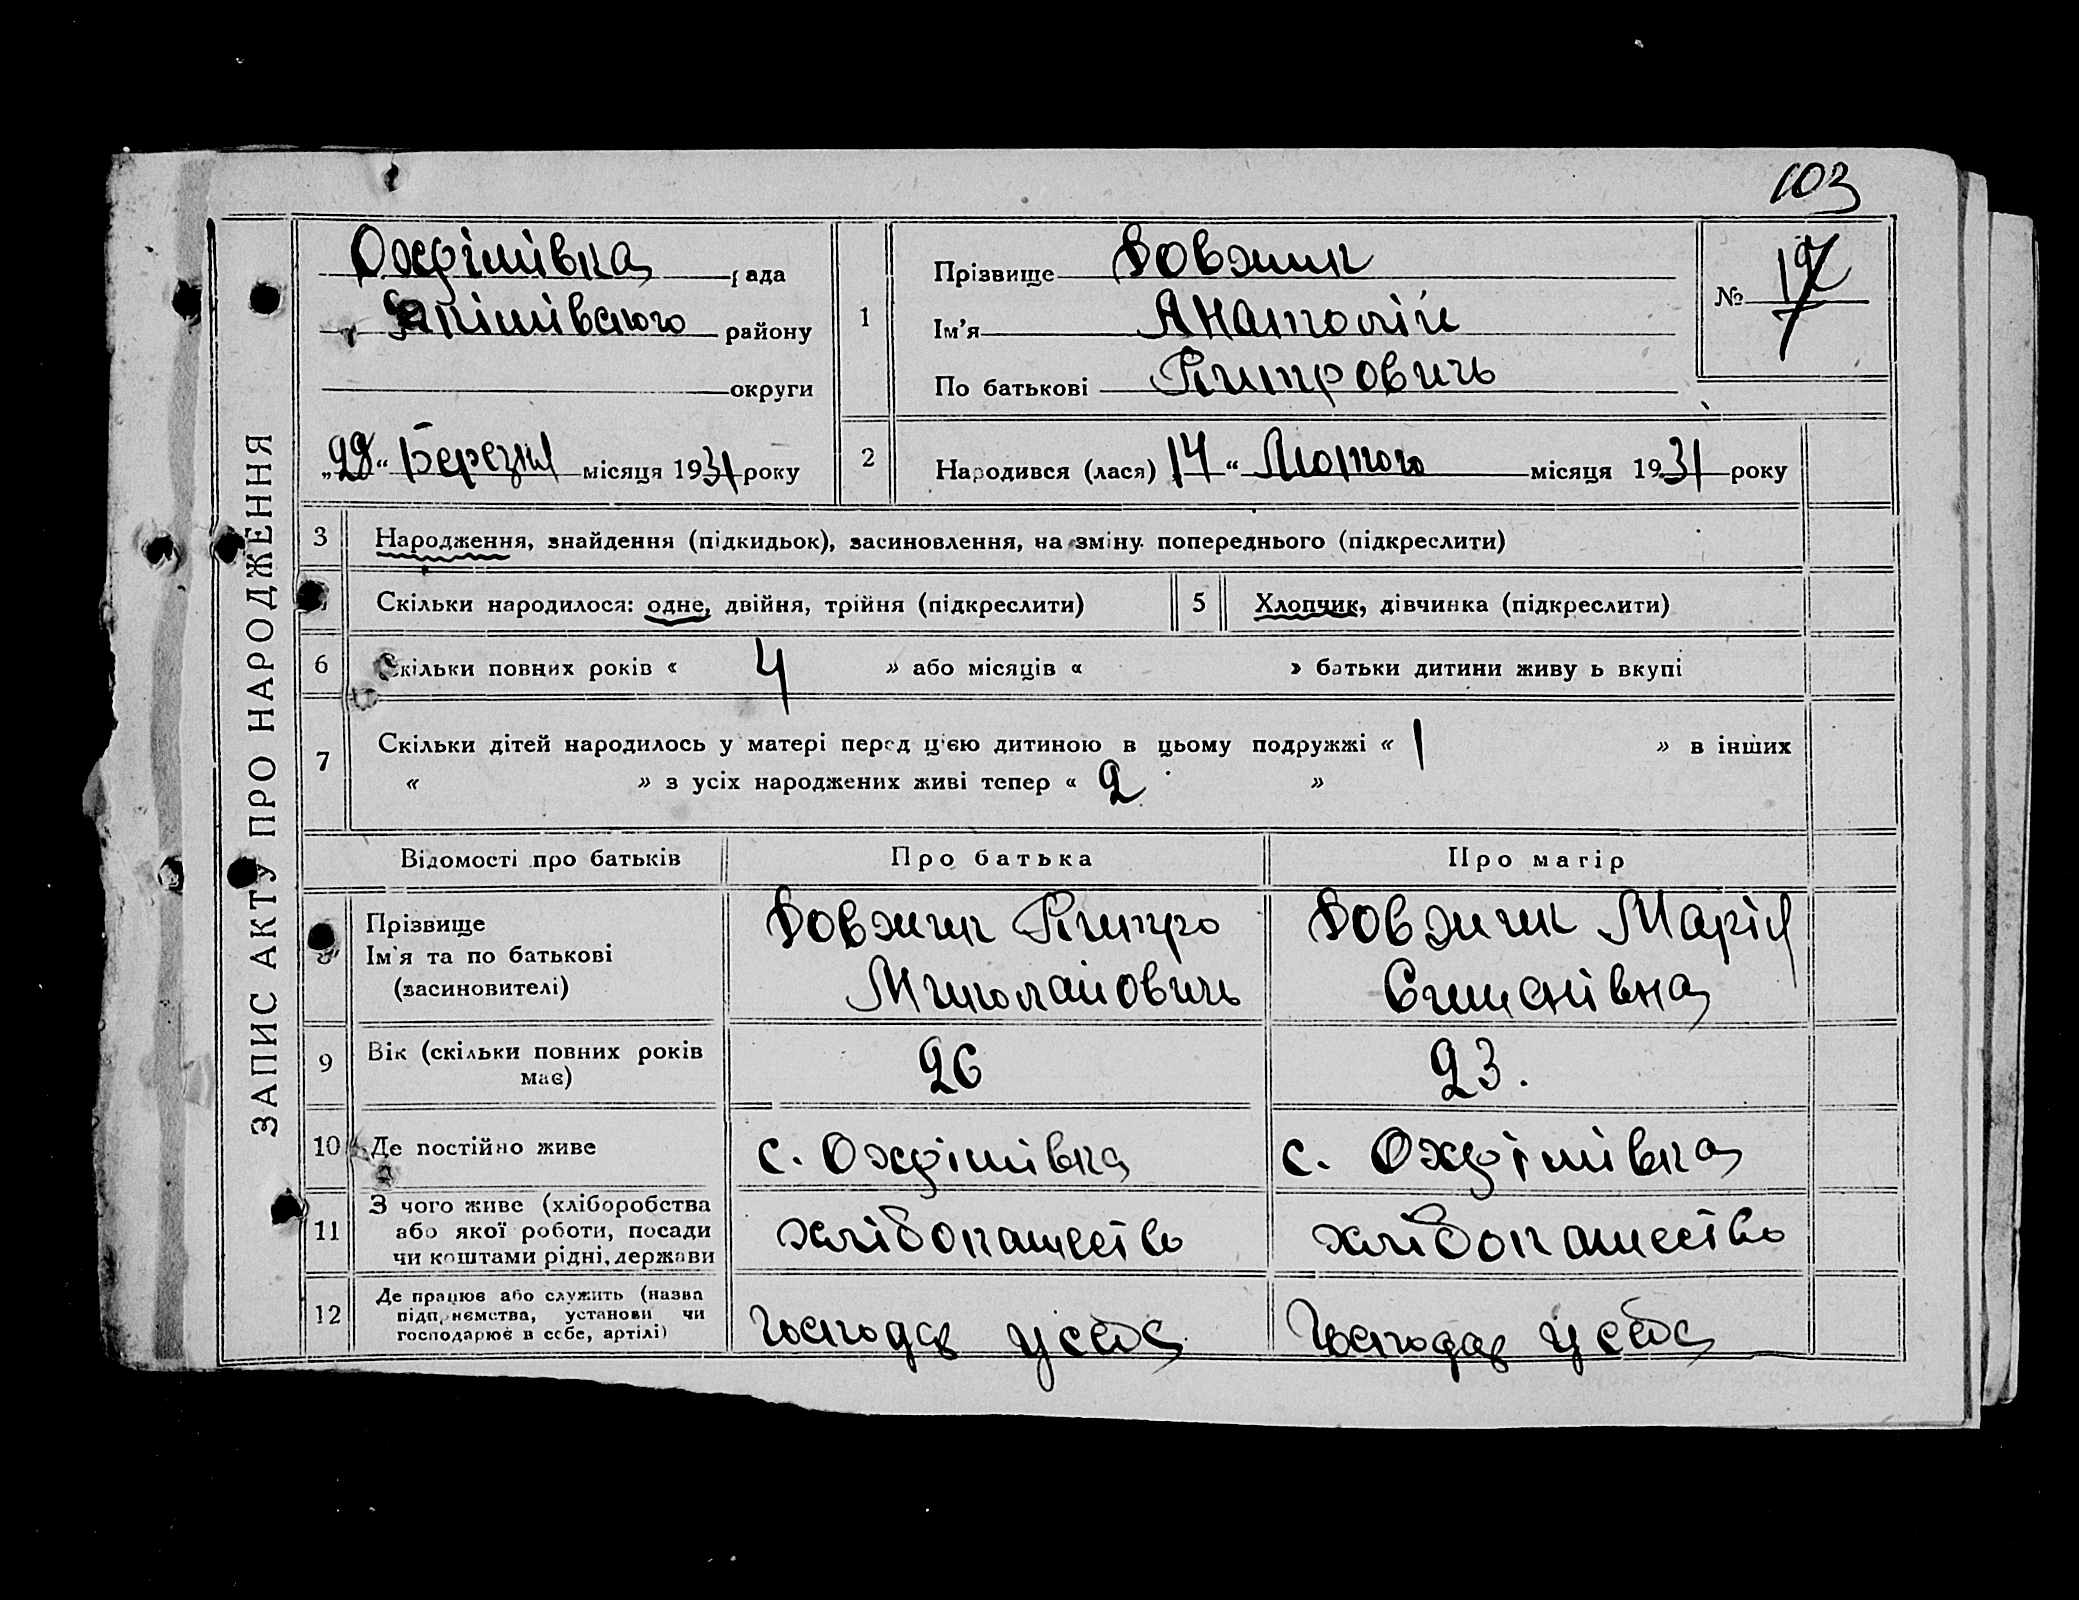 103
ЗАПИС АКТУ ПРО НАРОДЖЕННЯ
Охрімівка рада
Якімівського району
округи
„28“ Березня місяця 1931 року
1
Прізвище Довжик
Ім’я Анатолій
По батькові Дмитрович
№ 17
2
Народився (лася) 14 “ Лютого місяця 1931 року
3 Народження, знайдення (підкидьок), засиновлення, на зміну попереднього (підкреслити)
Скільки народилося: одне, двійня, трійня (підкреслити)
5 Хлопчик, дівчинка (підкреслити)
6 Скільки повних років « 4 » або місяців « » батьки дитини живу ь вкупі
7 Скільки дітей народилось у матері перед ц'єю дитиною в цьому подружжі « 1 » в інших
« » з усіх народжених живі тепер « 2 »
Відомості про батьків Про батька Про матір
8 Прізвище
Ім'я та по батькові
(засиновителі)
Довжик Дмитро
Миколайович
Довжик Марія
Семенівна
9 Вік (скільки повних років
має)
26 23.
10 Де постійно живе с. Охрімівка с. Охрімівка
11 З чого живе (хліборобства
або якої роботи, посади
чи коштами рідні, держави
хлібопашество хлібопашество
12 Де працює або служить (назва
підприємства, установи чи
господарює в себе, артілі)
господар у себе господар у себе